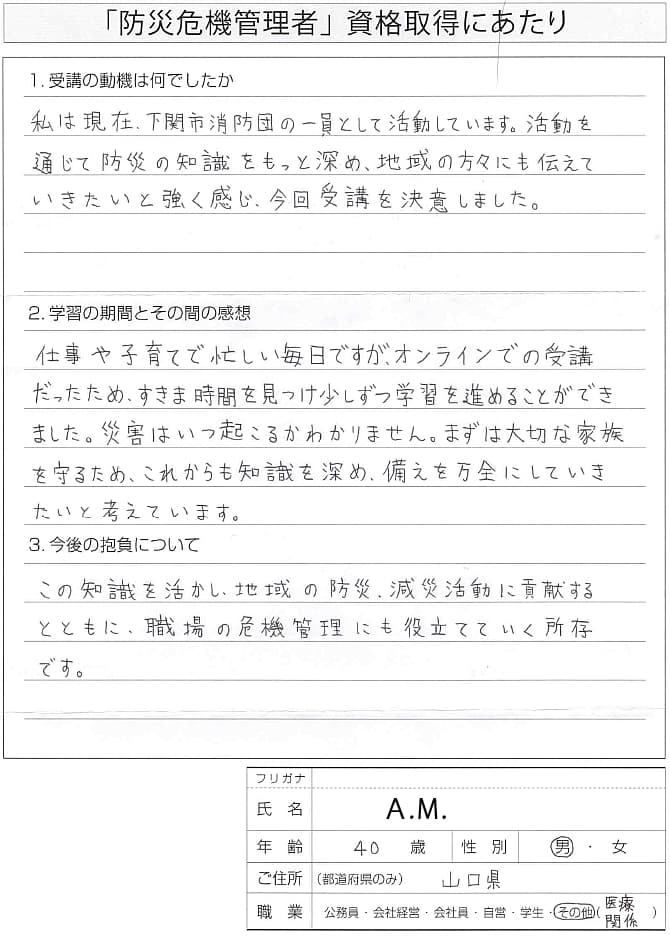 「防災危機管理者」資格取得にあたり
1. 受講の動機は何でしたか
私は現在、下関市消防団の一員として活動しています。活動を
通じて防災の知識をもっと深め、地域の方々にも伝えて
いきたいと強く感じ、今回受講を決意しました。
2. 学習の期間とその間の感想
仕事や子育てで忙しい毎日ですが、オンラインでの受講
だったため、すきま時間を見つけ少しずつ学習を進めることができ
ました。災害はいつ起こるかわかりません。まずは大切な家族
を守るため、これからも知識を深め、備えを万全にしていき
たいと考えています。
3. 今後の抱負について
この知識を活かし、地域の防災、減災活動に貢献する
とともに、職場の危機管理にも役立てていく所存
です。
フリガナ
氏名 A.M.
年齢 40 歳 性別 男・女
ご住所 (都道府県のみ) 山口県
職業 公務員・会社経営・会社員・自営・学生・その他(医療関係)